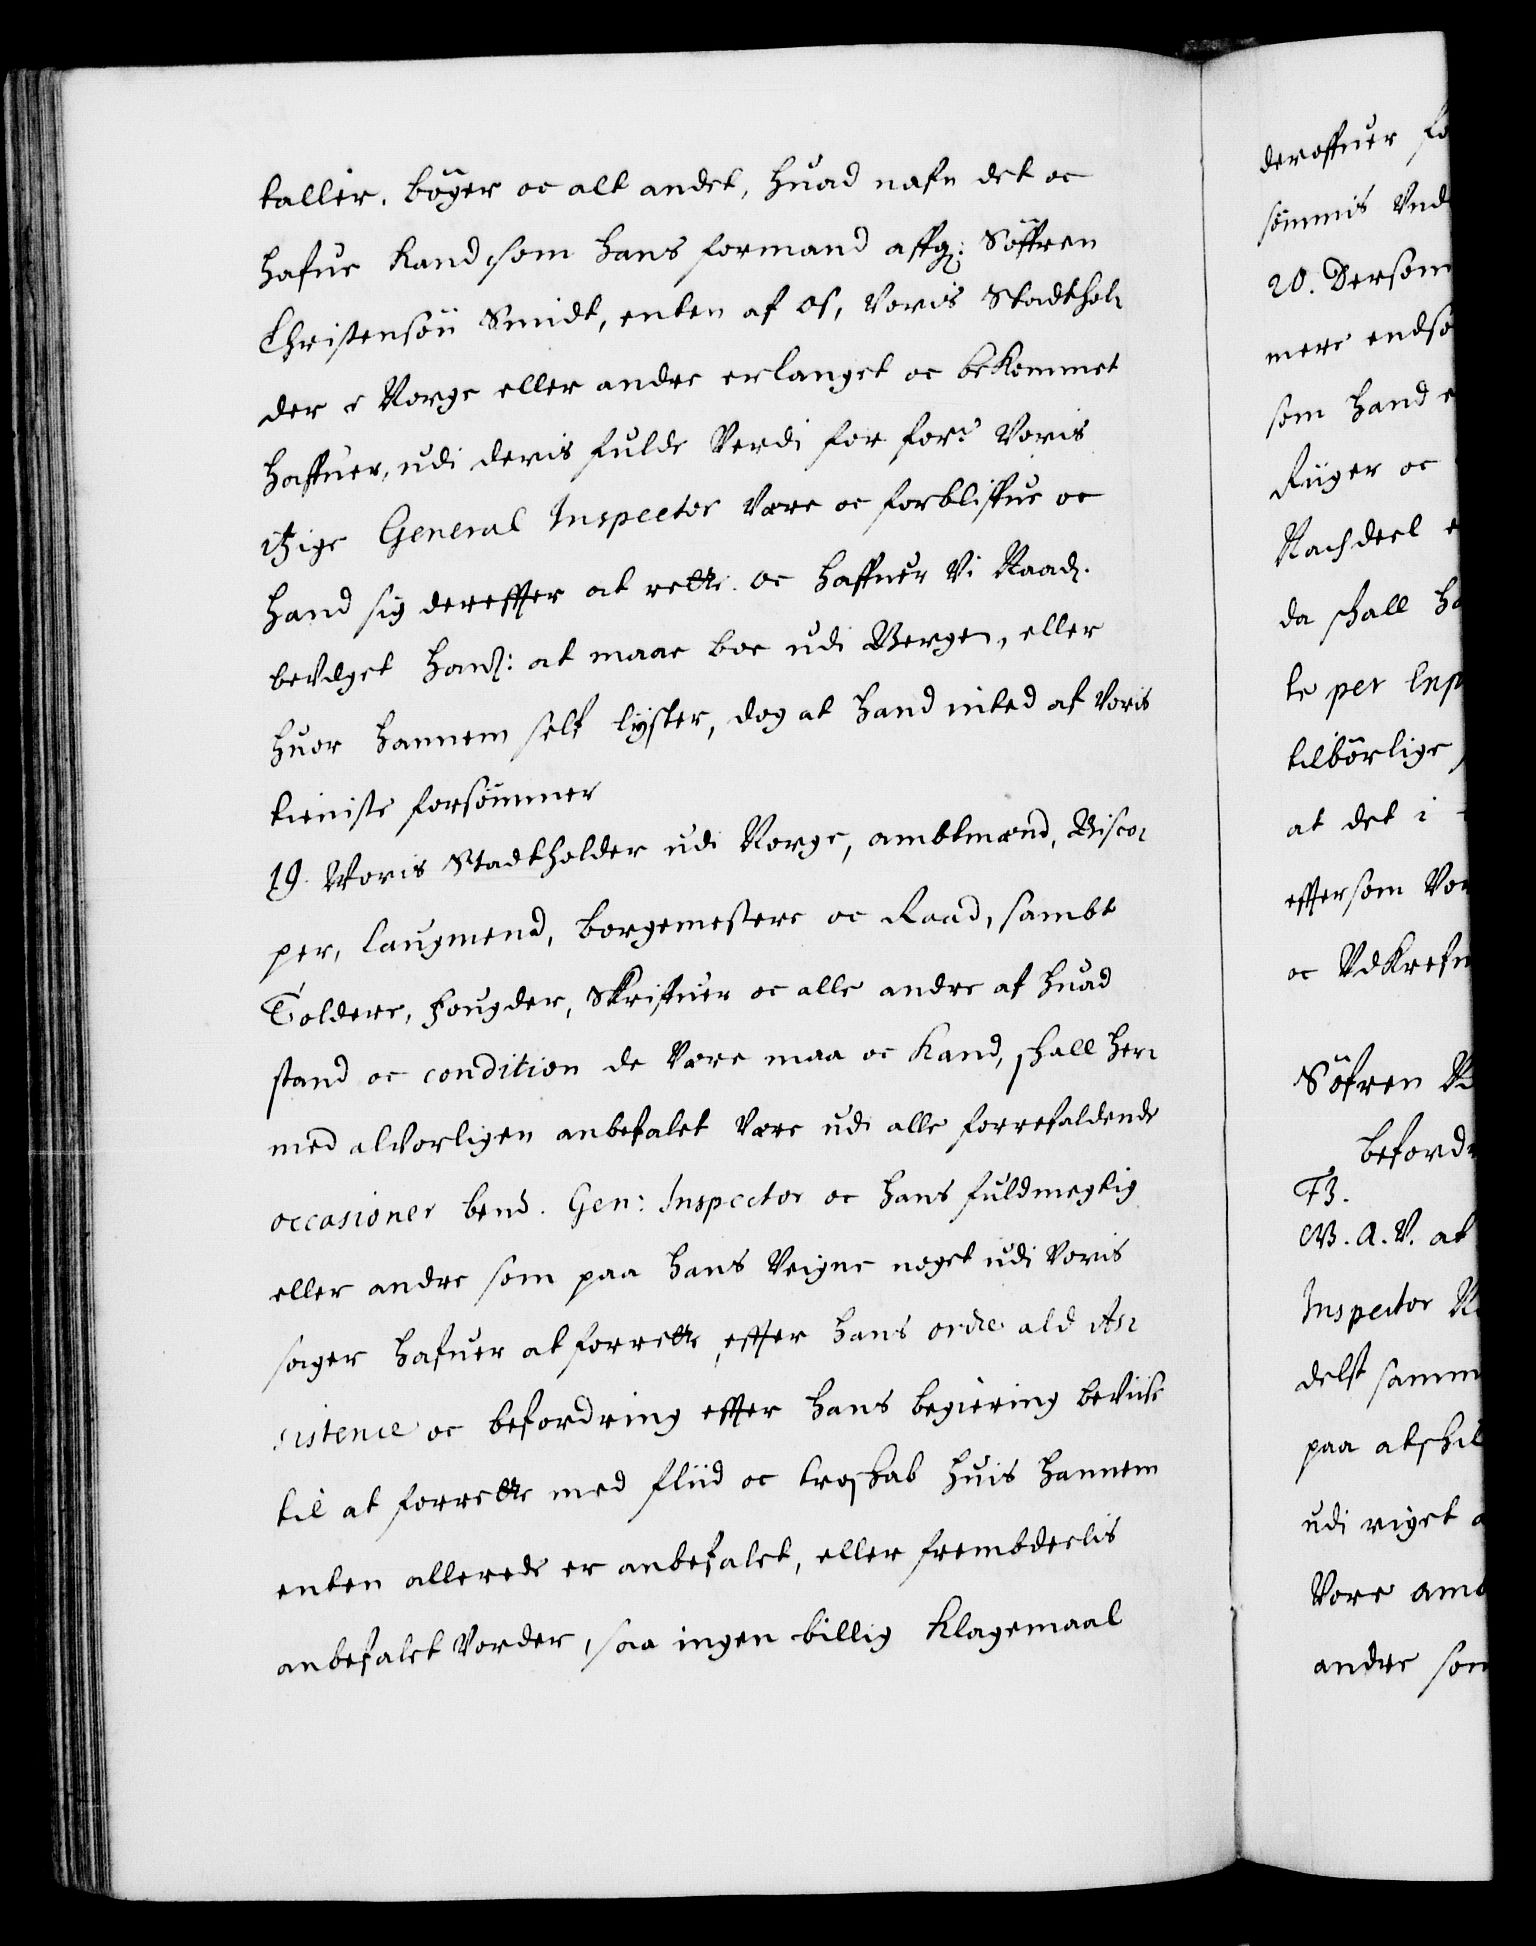 taller, bøger oc alt andet, huad nafn det oc
hafue kand, som hans formand affg: Søffren
Christensøn Smidt, enten af os, voris Stadthol-
der i Norge eller andre erlanget oc bekommet
haffuer, udi deris fulde Verdi for forne voris
itzige General Inspector være oc forbliffue oc
hand sig derefter at rette. oc haffuer Vi Naadt.
bevilget hannem: at maae boe udi Bergen, eller
huor hannem self lyster, dog at hand inted af voris
tieniste forsømmer
19. Woris Stadtholder udi Norge, ambtmænd, Bisco-
per, laugmend, borgemestere oc Raad, sambt
Toldere, Fougder, Skrifuer oc alle andre af huad
stand oc condition de være maa oc kand, skall her-
med alvorligen anbefalet være udi alle forrefaldende
occasioner bend. Gen: Inspector oc hans fuldmegtig
eller andre som paa hans Veigne noget udi voris
sager hafuer at forrette, efter hans ordre ald As-
sistence oc befordring efter hans begiering bevise
til at forrette med fliid oc troskab huis hannem
enten allerede er anbefalet, eller frembdeelis
anbefalet vorder, saa ingen billig Klagemaal
deroffuer fo
sømmis Vnd
20. Dersom
mere endso
som hand e
Riiger oc
Nachdeel e
da skall ha
te per Exp
tilbørlige
at det i
eftersom Vor
oc Vdkrefn
Søfren N
befordr
F3.
C.V. A. V. at
Inspector N
delst samm
paa atskil
udi riget a
Vore amb
andre som